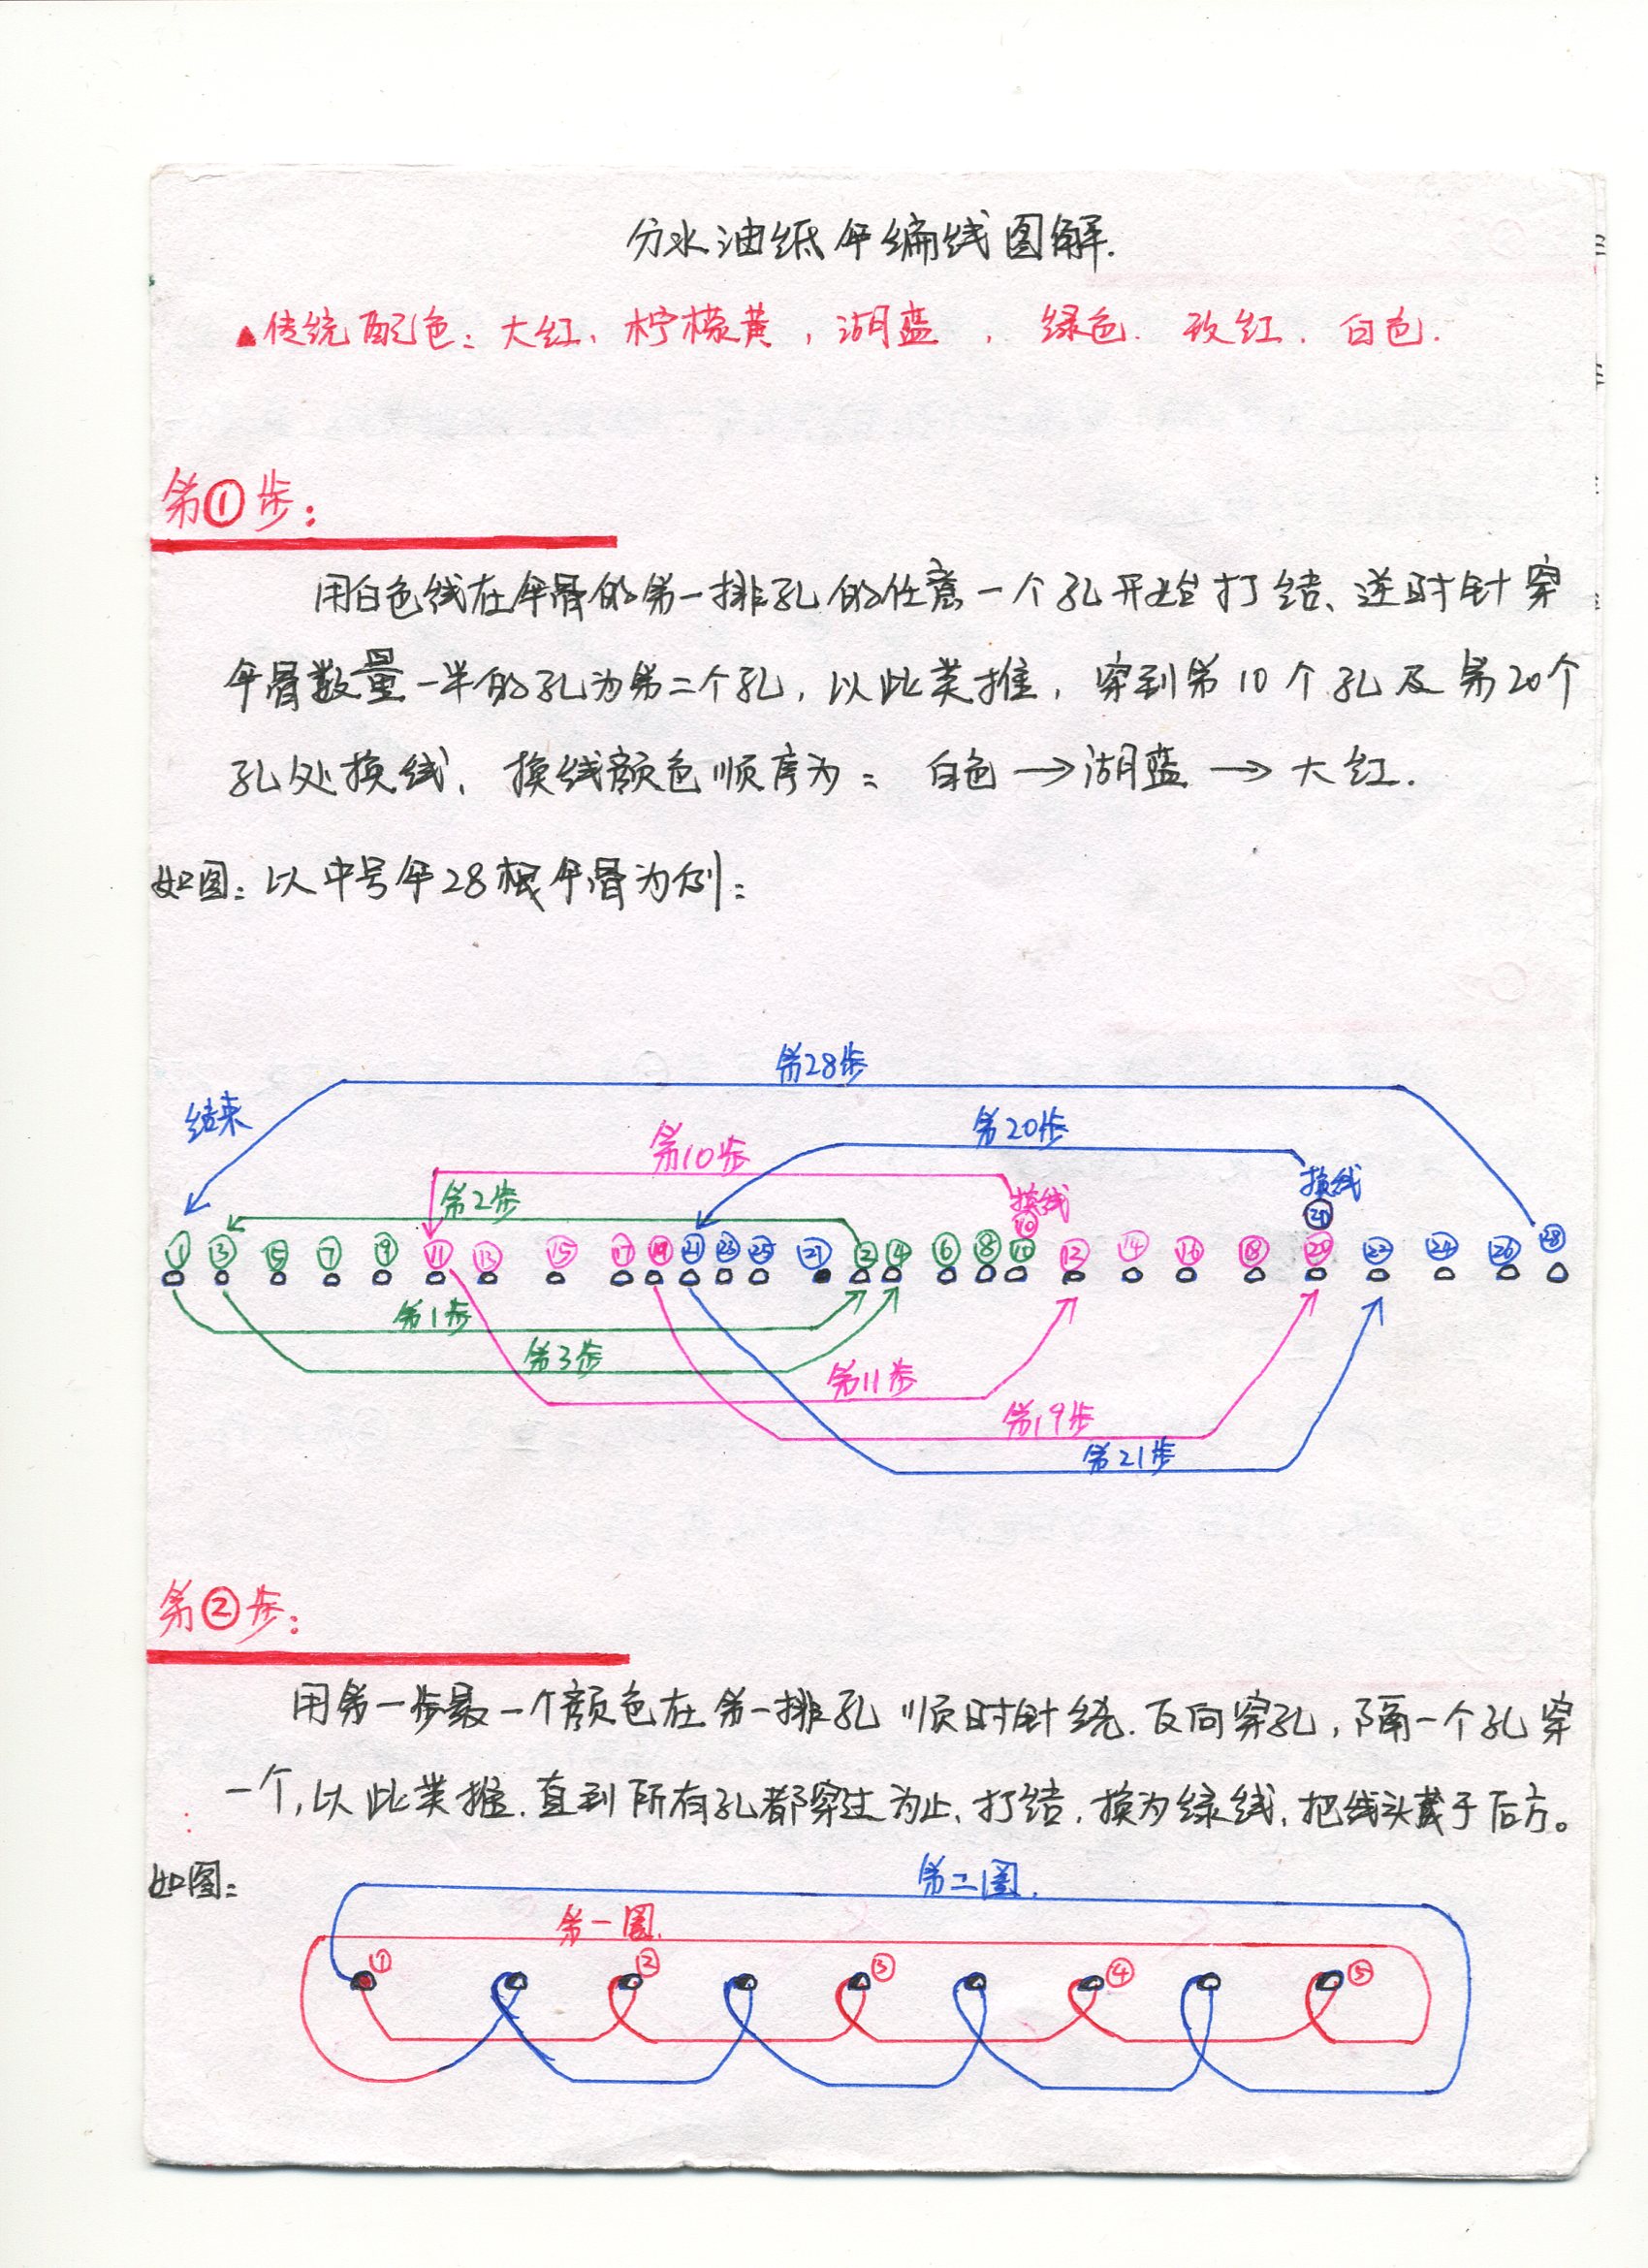 分水油纸伞编线图解.
▲传统配色：大红、柠檬黄，湖蓝，绿色．玫红．白色．
第①步：
用白色线在伞骨的第一排孔的任意一个孔开始打结、逆时针穿
伞骨数量一半的孔为第二个孔，以此类推，穿到第10个孔及第20个
孔处换线、换线颜色顺序为：白色→湖蓝→大红．
如图：以中号伞28根伞骨为例：
第28步
结束
第20步
第10步
换线
第2步
换线
⑩
⑳
① ③ ⑤ ⑦ ⑨ ⑪ ⑬ ⑮ ⑰ ⑲ ㉑ ㉓ ㉕ ㉗ ② ④ ⑥ ⑧ ⑩ ⑫ ⑭ ⑯ ⑱ ⑳ ㉒ ㉔ ㉖ ㉘
第1步
第3步
第11步
第19步
第21步
第②步：
用第一步最一个颜色在第一排孔顺时针绕．反向穿孔，隔一个孔穿
一个，以此类推．直到所有孔都穿过为止、打结．换为绿线、把线头藏于后方。
如图：
第二圈．
第一圈．
① ② ③ ④ ⑤